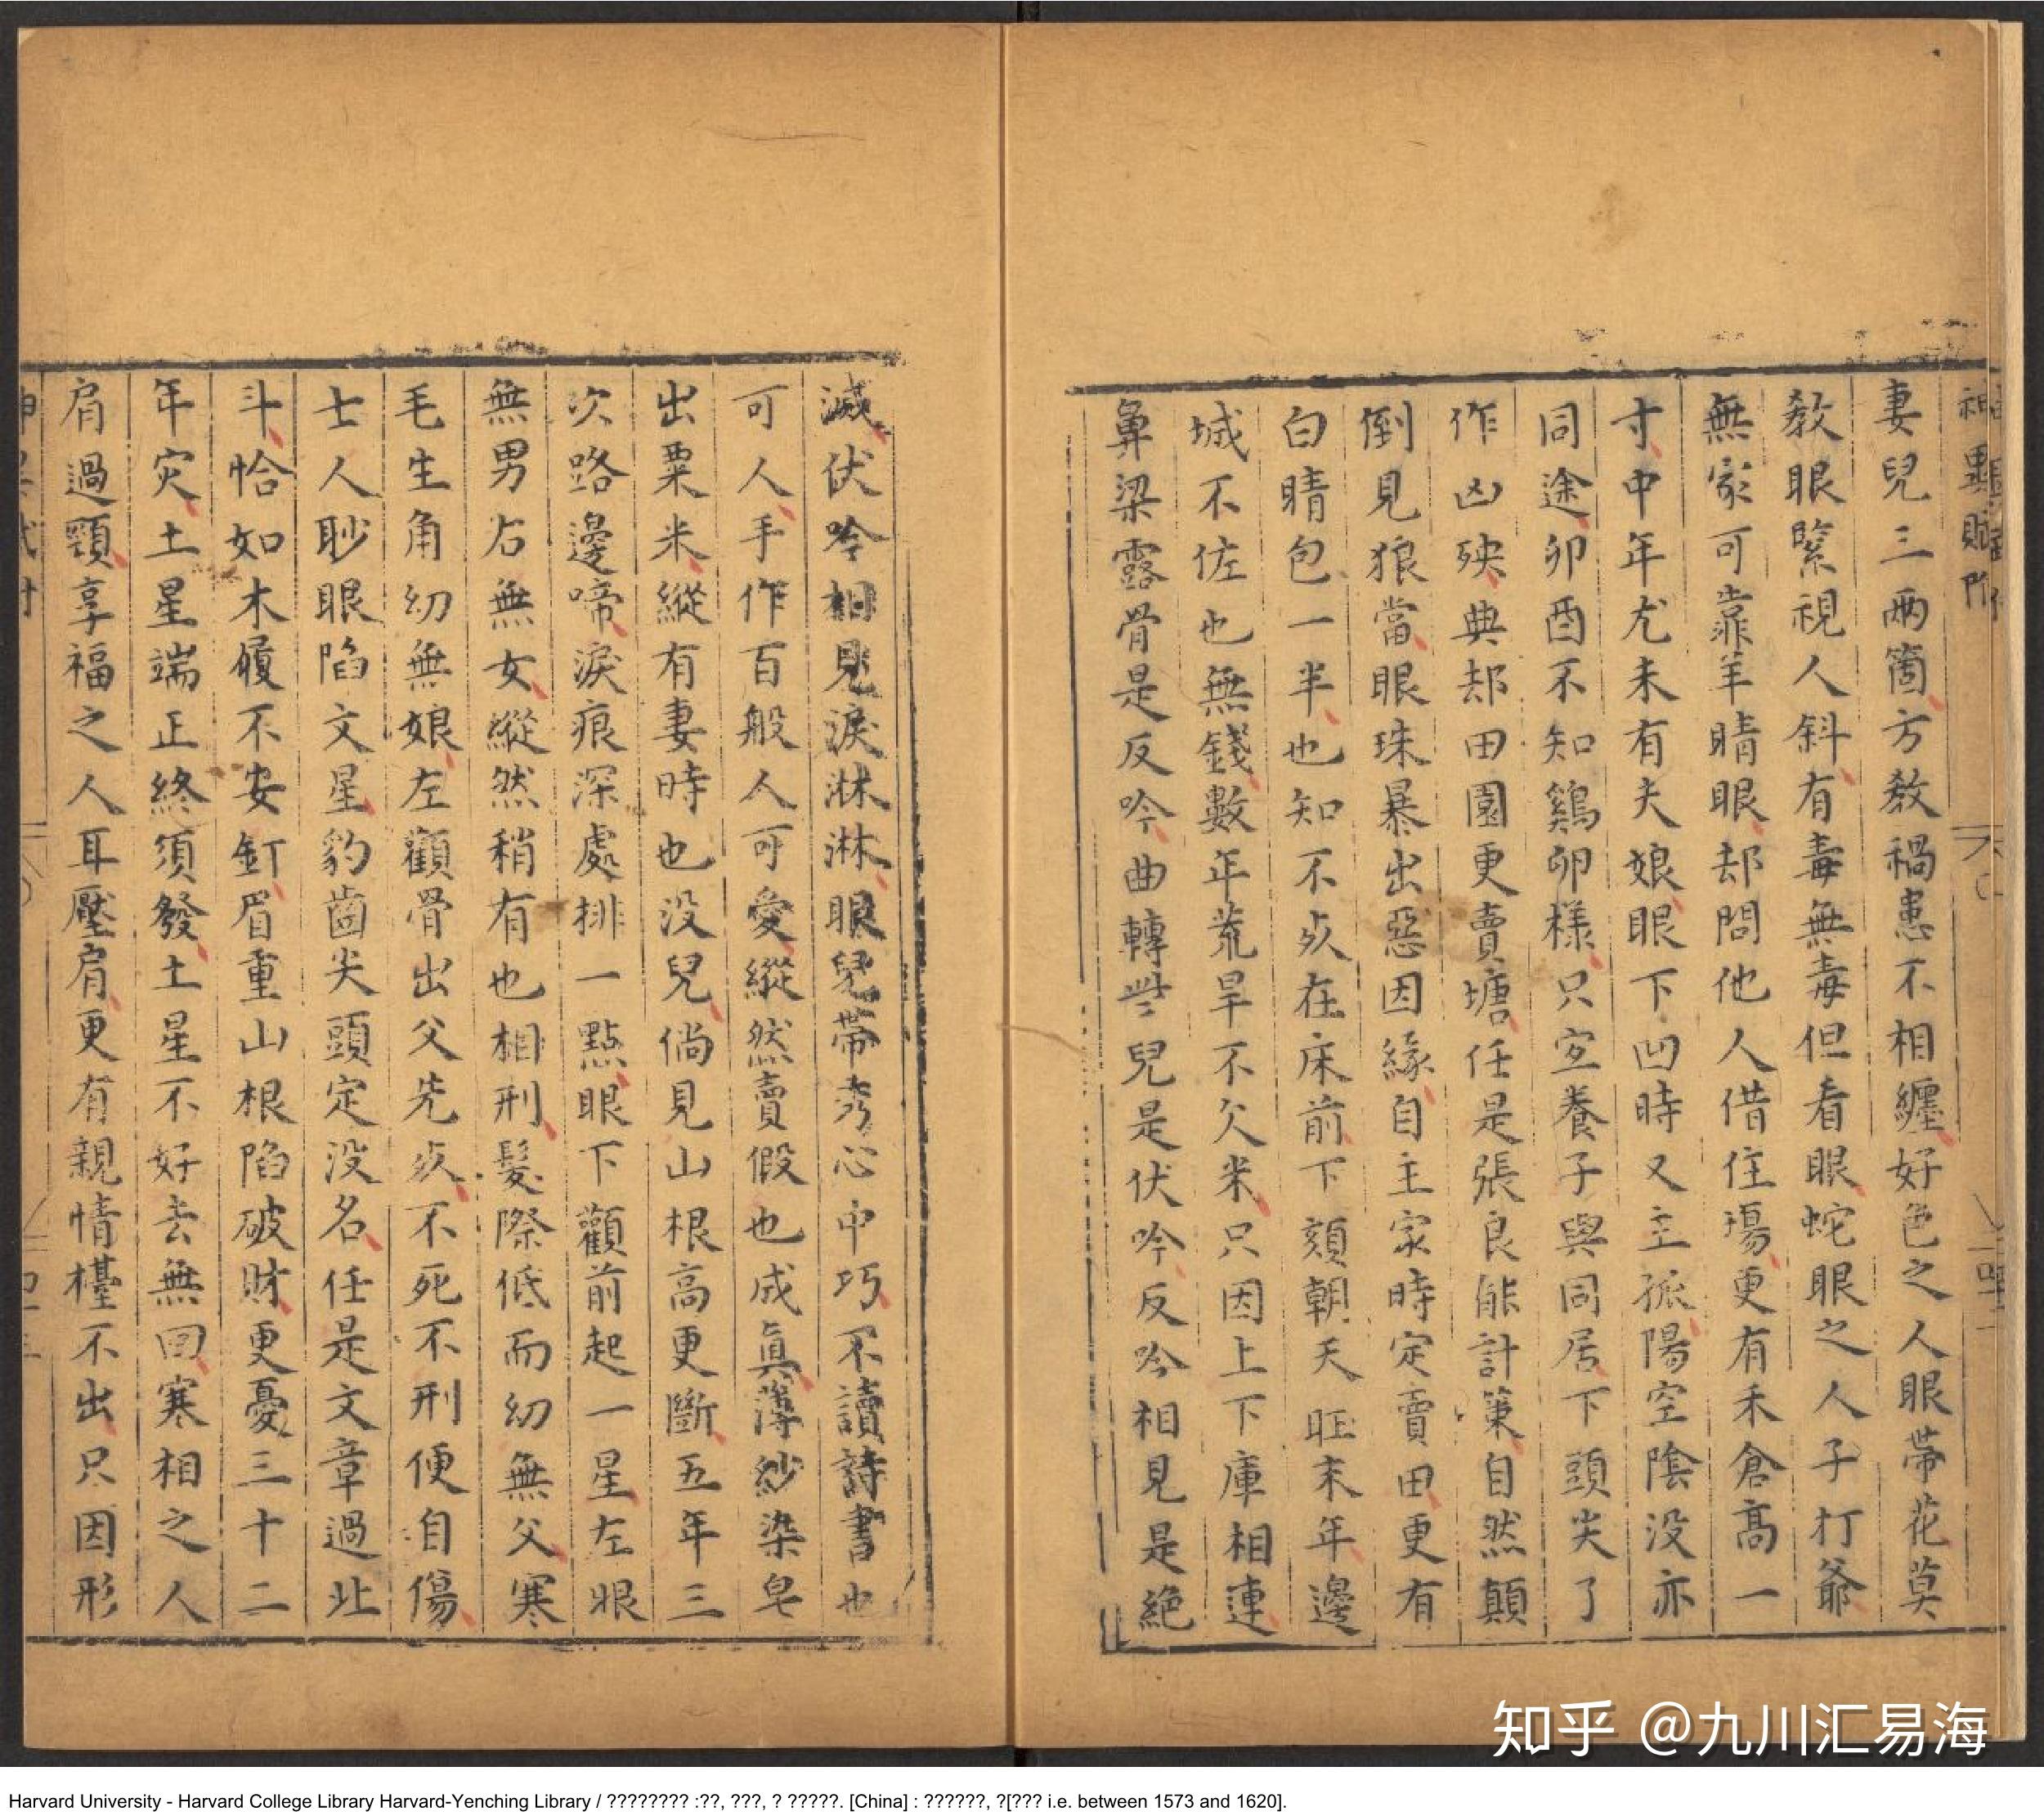 妻兒三兩箇方教禍患不相纏好色之人眼帶花莫
教眼緊視人斜有毒無毒但看眼蛇眼之人子打爺
無家可靠羊睛眼却問他人借住塲更有禾倉高一
寸中年尤未有夫娘眼下凹時又主孤陽空陰没亦
同途卯酉不知鷄卵樣只宜養子與同居下頭尖了
作凶殃典却田園更賣塘任是張良能計策自然顛
倒見狼當眼珠暴出惡因緣自主家時定賣田更有
白睛包一半也知不死在床前下頦朝天旺末年邊
城不佐也無錢數年荒旱不欠米只因上下庫相連
鼻梁露骨是反吟曲轉些兒是伏吟反吟相見是絶
滅伏吟相見淚淋淋眼兒帶秀心中巧不讀詩書也
可人手作百般人可愛縱然賣假也成真薄紗染皂
出粟米縱有妻時也没兒倘見山根高更斷五年三
次路邊啼淚痕深處排一點眼下顴前起一星左眼
無男右無女縱然稍有也相刑髮際低而幼無父寒
毛生角幼無娘左顴骨出父先死不死不刑便自傷
士人眇眼陷文星豹齒尖頭定没名任是文章過北
斗恰如木履不安釘眉重山根陷破財更憂三十二
年灾土星端正終須發土星不好去無回寒相之人
肩過頸享福之人耳壓肩更有親情檯不出只因形
知乎 @九川汇易海
Harvard University - Harvard College Library Harvard-Yenching Library / ???????? :??, ???, ? ?????. [China] : ??????, ?[??? i.e. between 1573 and 1620].